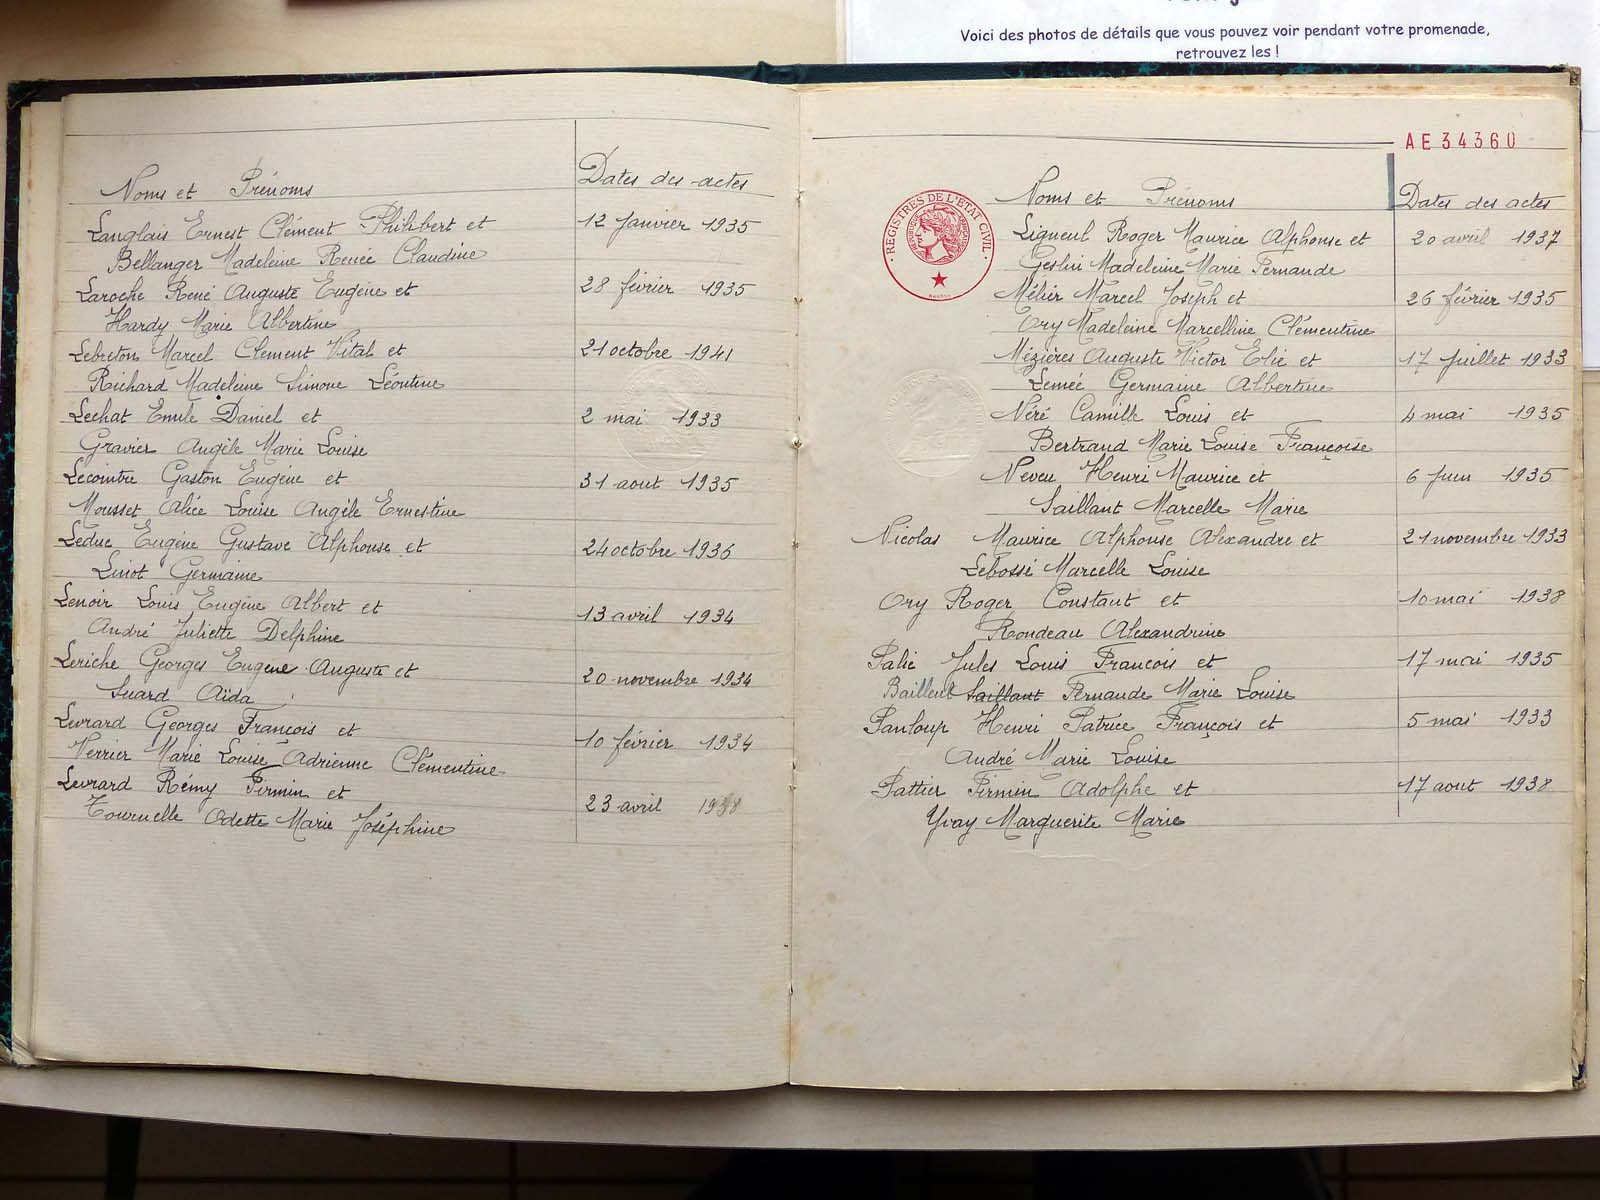 Voici des photos de détails que vous pouvez voir pendant votre promenade,
retrouvez les !
Noms et Prénoms Dates des actes
Langlais Ernest Clément Philibert et 12 Janvier 1935
Bellanger Madeleine Renée Claudine
Laroche René Auguste Eugène et 28 février 1935
Hardy Marie Albertine
Lebreton Marcel Clément Vital et 21 octobre 1941
Richard Madeleine Simone Léontine
Lechat Emile Daniel et 2 mai 1933
Gravier Angèle Marie Louise
Lecointre Gaston Eugène et 31 aout 1935
Mousset Alice Louise Angèle Ernestine
Leduc Eugène Gustave Alphonse et 24 octobre 1936
Linot Germaine
Lenoir Louis Eugène Albert et 13 avril 1934
André Juliette Delphine
Leriche Georges Eugene Auguste et 20 novembre 1934
Suard Aïda
Levrard Georges François et 10 février 1934
Verrier Marie Louise Adrienne Clémentine
Levrard Rémy Firmin et 23 avril 1938
Tournelle Odette Marie Joséphine
AE34360
REGISTRES DE L'ETAT CIVIL
Noms et Prénoms Dates des actes
Ligneul Roger Maurice Alphonse et 20 avril 1937
Geslin Madeleine Marie Fernande
Mélier Marcel Joseph et 26 février 1935
Ory Madeleine Marcelline Clémentine
Mézières Auguste Victor Elie et 17 Juillet 1933
Lemée Germaine Albertine
Néré Camille Louis et 4 mai 1935
Bertrand Marie Louise Françoise
Neveu Henri Maurice et 6 Juin 1935
Saillant Marcelle Marie
Nicolas Maurice Alphonse Alexandre et 21 novembre 1933
Lebossé Marcelle Louise
Ory Roger Constant et 10 mai 1938
Rondeau Alexandrine
Palic Jules Louis François et 17 mai 1935
Bailleul Saillant Fernande Marie Louise
Panloup Henri Patrice François et 5 mai 1933
André Marie Louise
Pattier Firmin Adolphe et 17 aout 1938
Yvay Marguerite Marie